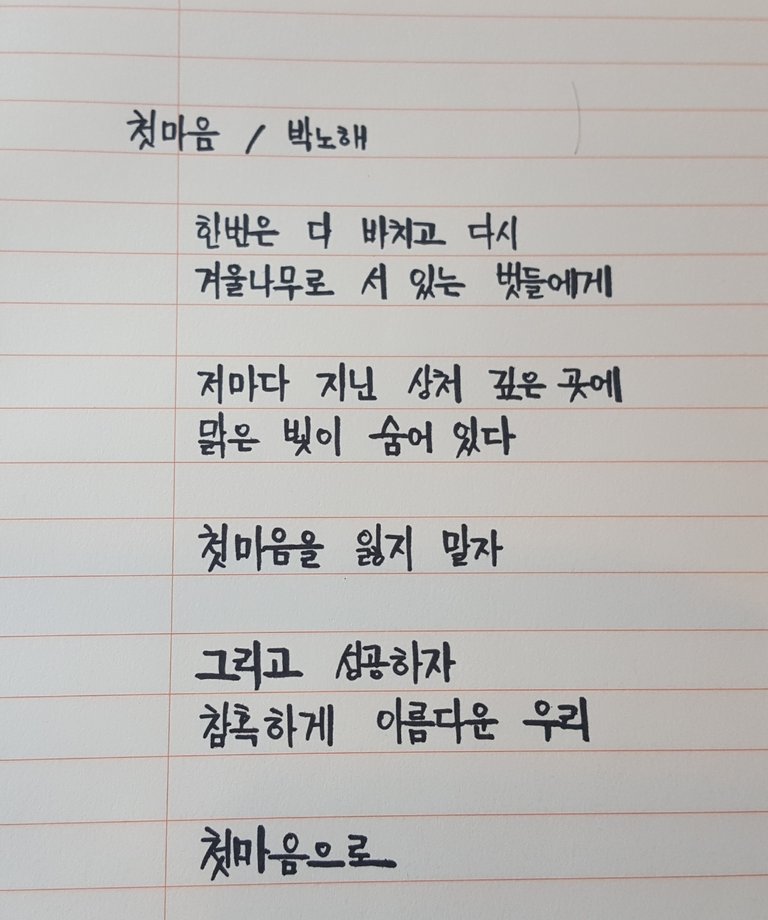 첫마음 / 박노해
한번은 다 바치고 다시
겨울나무로 서 있는 벗들에게
저마다 지닌 상처 깊은 곳에
맑은 빛이 숨어 있다
첫마음을 잃지 말자
그리고 성공하자
참혹하게 아름다운 우리
첫마음으로